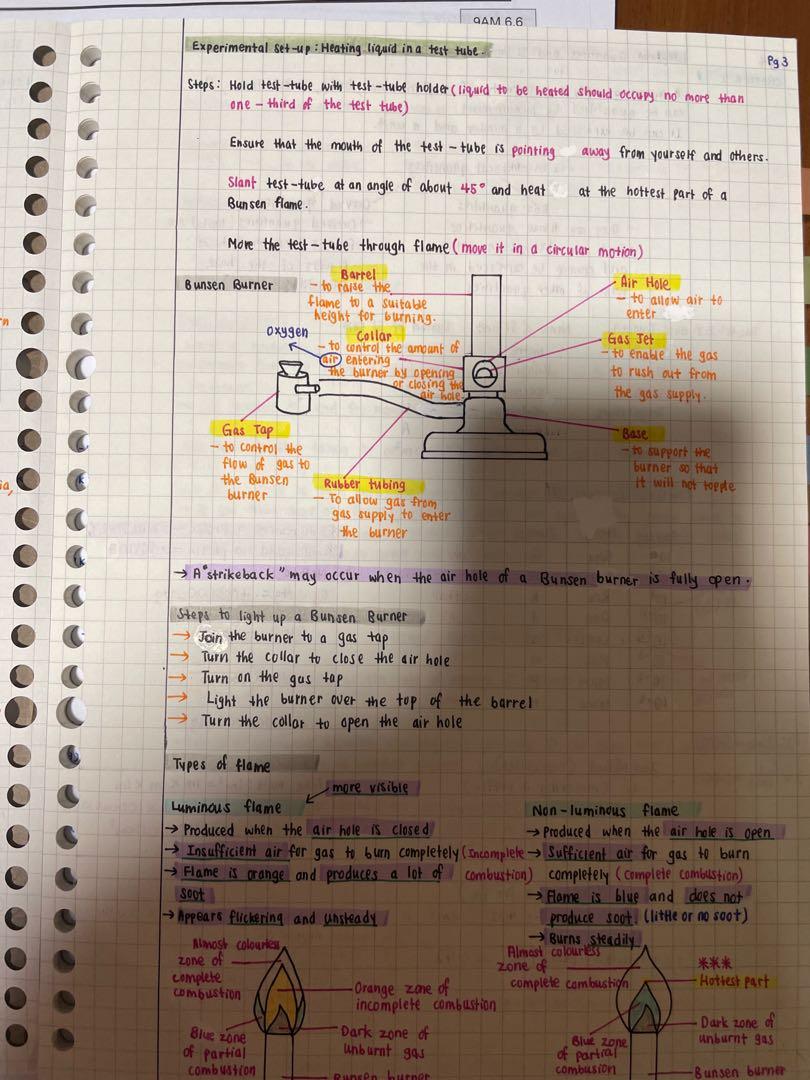 9AM 6.6
Pg 3
Experimental set-up : Heating liquid in a test tube.
Steps: Hold test-tube with test-tube holder (liquid to be heated should occupy no more than
one-third of the test tube)
Ensure that the mouth of the test-tube is pointing away from yourself and others.
Slant test-tube at an angle of about 45° and heat at the hottest part of a
Bunsen flame.
Move the test-tube through flame (move it in a circular motion)
Bunsen Burner
Barrel
- to raise the
flame to a suitable
height for burning.
Air Hole
- to allow air to
enter
oxygen
Collar
- to control the amount of
air entering
the burner by opening
or closing the
air hole.
Gas Jet
- to enable the gas
to rush out from
the gas supply.
Gas Tap
- to control the
flow of gas to
the Bunsen
burner
Rubber tubing
- To allow gas from
gas supply to enter
the burner
Base
- to support the
burner so that
it will not topple
→ A "strikeback" may occur when the air hole of a Bunsen burner is fully open.
Steps to light up a Bunsen Burner
→ Join the burner to a gas tap
→ Turn the collar to close the air hole
→ Turn on the gas tap
→ Light the burner over the top of the barrel
→ Turn the collar to open the air hole
Types of flame
more visible
Luminous flame
→ Produced when the air hole is closed
→ Insufficient air for gas to burn completely (Incomplete
combustion)
→ Flame is orange and produces a lot of
soot
→ Appears flickering and unsteady
Almost colourless
zone of
complete
combustion
Orange zone of
incomplete combustion
Blue zone
of partial
combustion
Dark zone of
unburnt gas
Bunsen burner
Non-luminous flame
→ Produced when the air hole is open
→ Sufficient air for gas to burn
completely (complete combustion)
→ Flame is blue and does not
produce soot. (little or no soot)
→ Burns steadily
Almost colourless
zone of
complete combustion
***
Hottest part
Blue zone
of partial
combusion
Dark zone of
unburnt gas
Bunsen burner